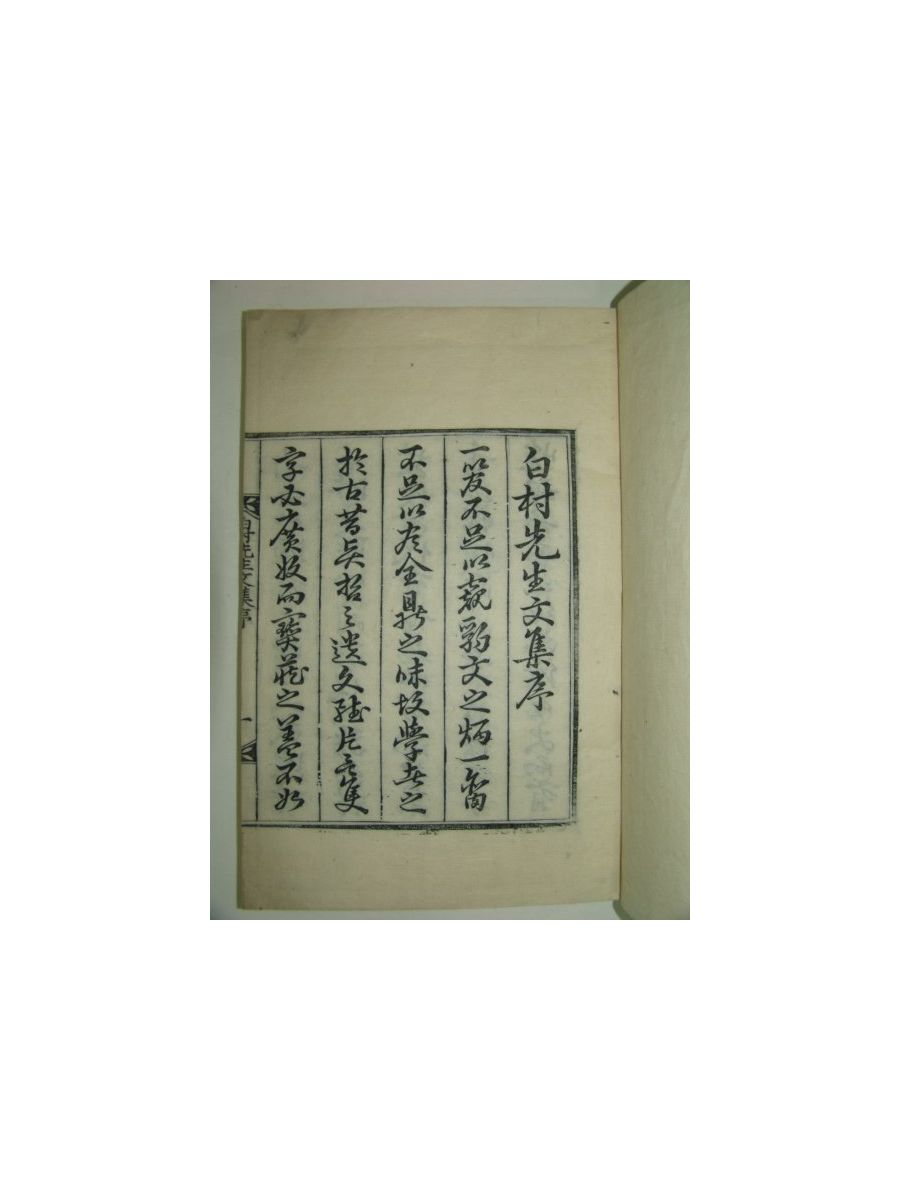 白村先生文集序
一斑不足以窺豹文之炳一臠
不足以盡全鼎之味故學者之
於古昔哲之遺文雖片言隻
字必廣收而寶藏之盖不如
白村先生文集序 一